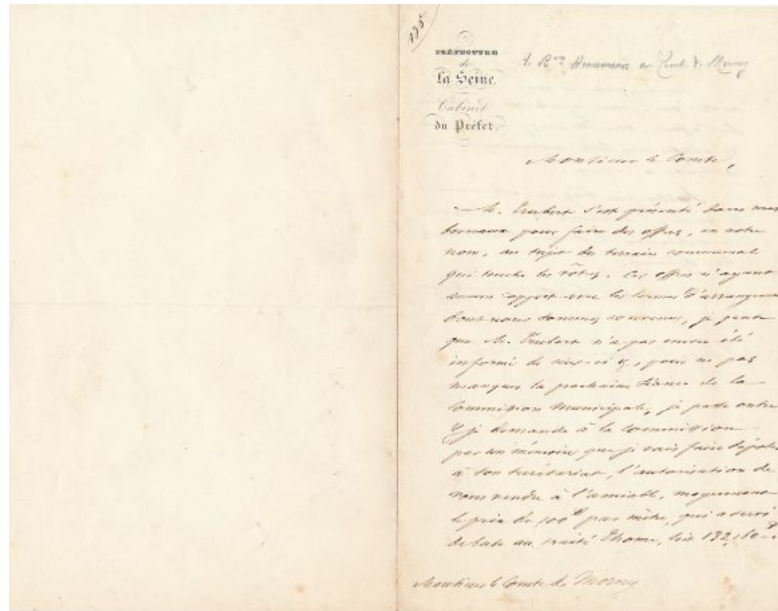 135
PRÉFECTURE
de
La Seine.
Cabinet
du Préfet.
Le Bon Haussmann au Comte de Morny
Monsieur le Comte,
M. Trubert s'est présenté dans mes
bureaux pour faire des offres, en votre
nom, au sujet du terrain communal
qui touche les vôtres. Ces offres n'ayant
aucun rapport avec les bases d'arrangement
dont nous sommes convenus, je pense
que M. Trubert n'a pas encore été
informé de ceux-ci &, pour ne pas
manquer la prochaine séance de la
Commission Municipale, je passe outre
& je demande à la Commission
par un mémoire que je vais faire déposer
à son secrétariat, l'autorisation de
vous vendre à l'amiable, moyennant
le prix de 100f par mètre, qui a servi
de base au traité Thome, soit 132,160f
Monsieur le Comte de Morny